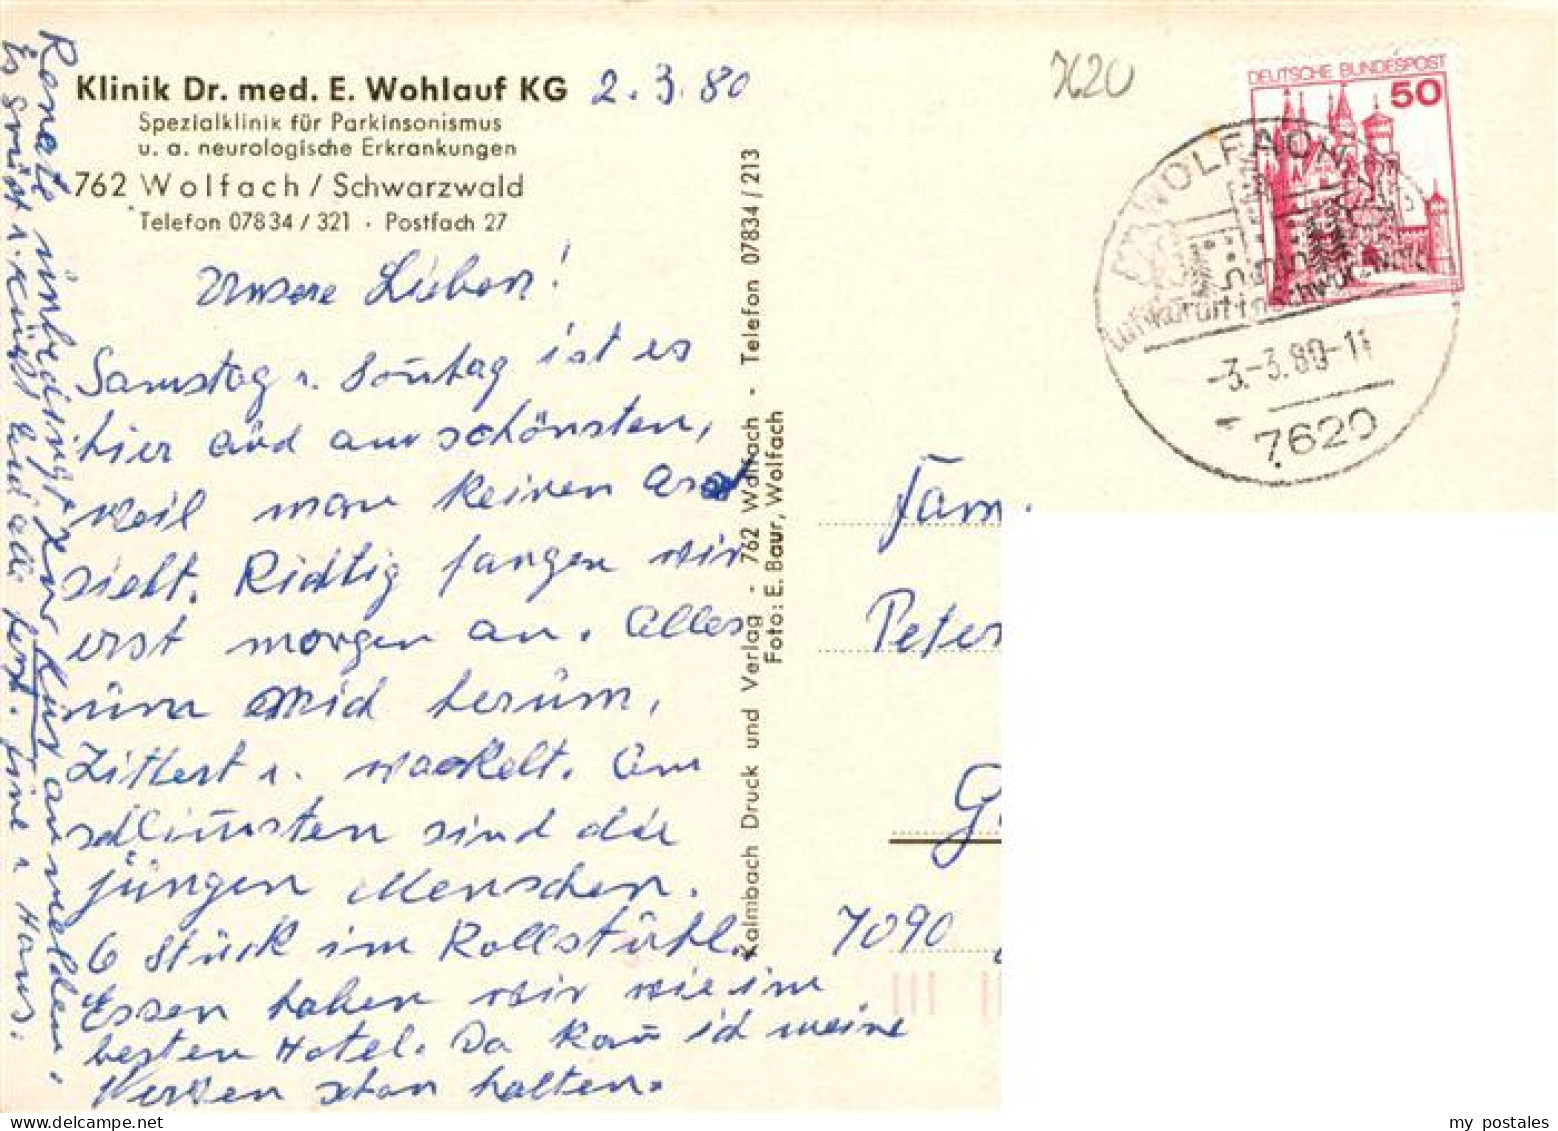 Klinik Dr. med. E. Wohlauf KG 2.3.80
Spezialklinik für Parkinsonismus
u. a. neurologische Erkrankungen
762 Wolfach / Schwarzwald
Telefon 07834 / 321 · Postfach 27
Unsere Lieben!
Samstag u. Sonntag ist es
hier am schönsten,
weil man keinen
sieht. Richtig fangen wir
erst morgen an. Alles
um mich herum,
zittert u. wackelt. Am
schlimmsten sind die
jungen Menschen.
6 Stück im Rollstuhl.
Essen haben wir wie im
besten Hotel. Da kann ich meine
Nerven schon halten.
Renate unbedingt zur Kur anmelden.
Es grüßt u. küßt Euch alle herzl. Eure u. Hans.
Kalmbach Druck und Verlag - 762 Wolfach - Telefon 07834 / 213
Foto: E. Baur, Wolfach
7620
DEUTSCHE BUNDESPOST
50
WOLFACH
Luftkurort im Schwarzwald
-3.-3.80-11
7620
Fam.
Peter
G
7090
my postales